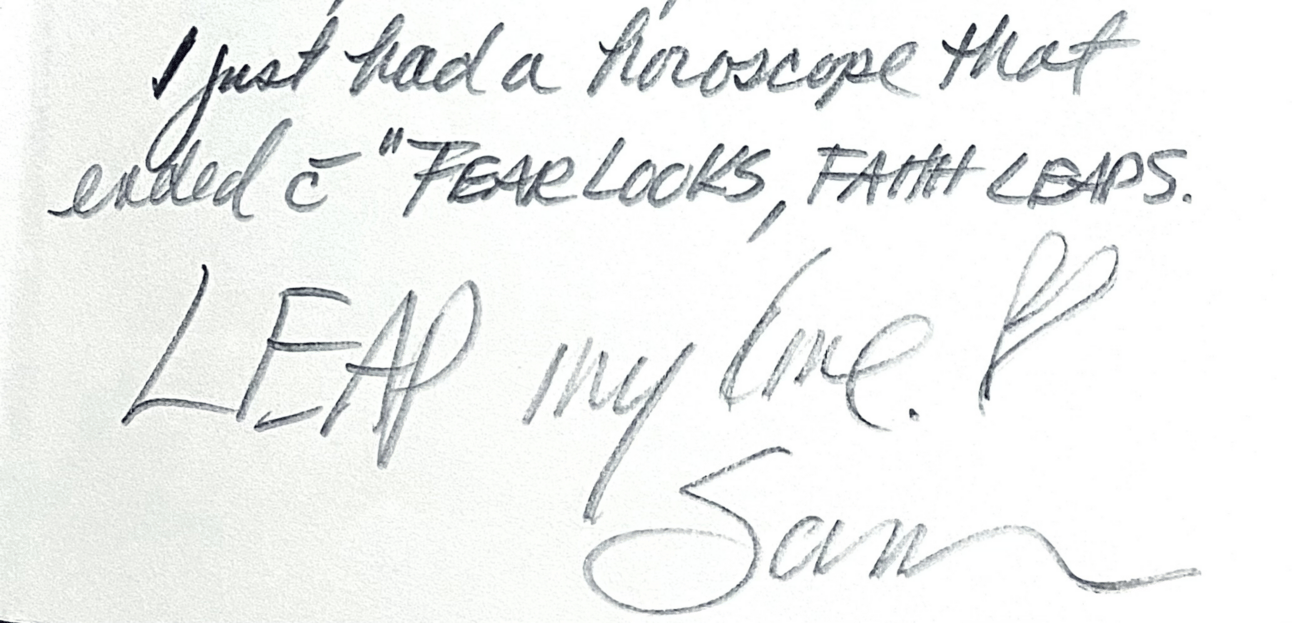 I just had a horoscope that
ended c̄ "FEAR LOOKS, FAITH LEAPS.
LEAP my love. ♡
Sam